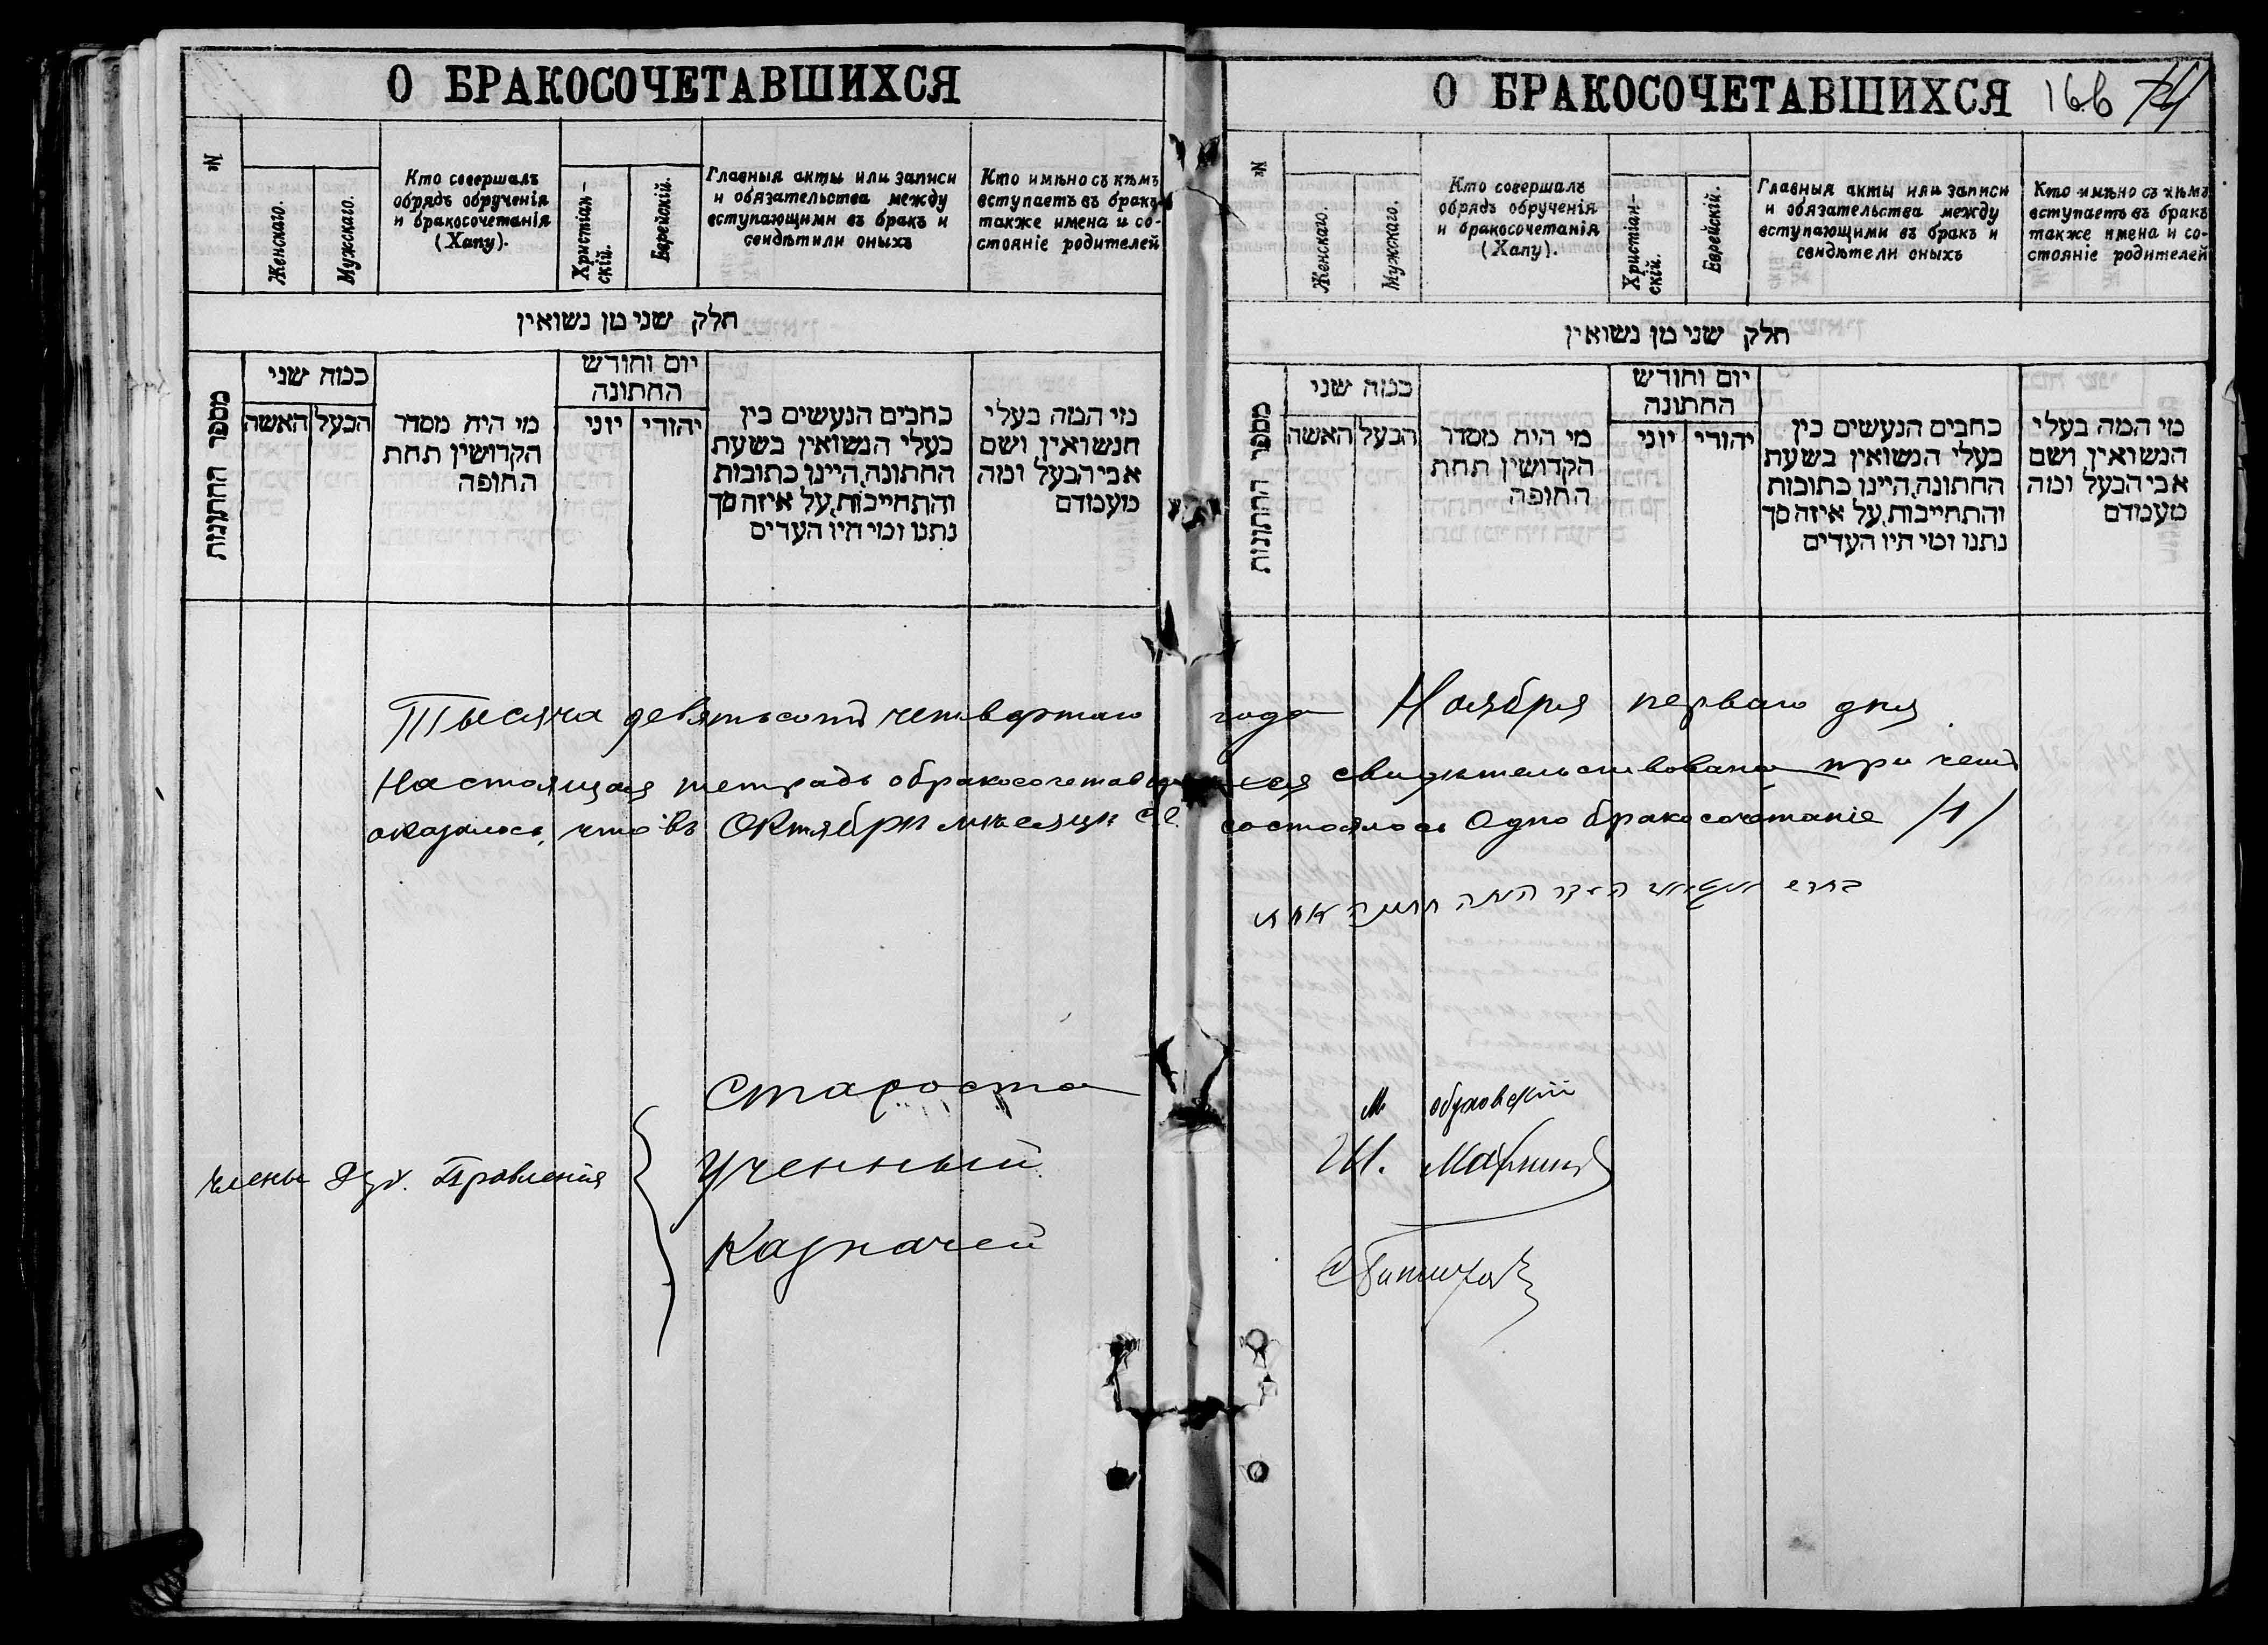 О БРАКОСОЧЕТАВШИХСЯ
№
Женскаго.
Мужскаго.
Кто совершалъ
обрядъ обрученія
и бракосочетанія
(Хапу).
Христіан-
скій.
Еврейскій.
Главныя акты или записи
и обязательства между
вступающими въ бракъ и
свидѣтили оныхъ
Кто имѣно съ кѣмъ
вступаетъ въ бракъ
также имена и со-
стояніе родителей
חלק שני מן נשואין
מספר החתונות
כמה שני
האשה
הבעל
מי היה מסדר
הקדושין תחת
החופה
יום וחודש
החתונה
יוני
יהודי
כתבים הנעשים בין
בעלי הנשואין בשעת
החתונה, היינו כתובות
והתחייבות, על איזה סך
נתנו ומי היו העדים
מי המה בעלי
הנשואין ושם
אבי הבעל ומה
מעמדם
Тысяча девятьсотъ четвертаго
Настоящая тетрадь о бракосочетавши
оказалось, что въ Октябрѣ мѣсяцѣ с.г.
Староста
Члены Дух. Правленія
Ученный
Казначей
О БРАКОСОЧЕТАВШИХСЯ 166
№
Женскаго.
Мужскаго.
Кто совершалъ
обрядъ обрученія
и бракосочетанія
(Хапу).
Христіан-
скій.
Еврейскій.
Главныя акты или записи
и обязательства между
вступающими въ бракъ и
свидѣтели оныхъ
Кто имѣно съ кѣмъ
вступаетъ въ бракъ
также имена и со-
стояніе родителей
חלק שני מן נשואין
מספר החתונות
כמה שני
האשה
הבעל
מי היה מסדר
הקדושין תחת
החופה
יום וחודש
החתונה
יוני
יהודי
כתבים הנעשים בין
בעלי הנשואין בשעת
החתונה, היינו כתובות
והתחייבות, על איזה סך
נתנו ומי היו העדים
מי המה בעלי
הנשואין ושם
אבי הבעל ומה
מעמדם
года Ноября перваго дня
хся свидѣтельствована при чемъ
состоялось Одно бракосочетаніе /1/
בחדש היתה חתונה אחת
М. Обуховскій
Ш.